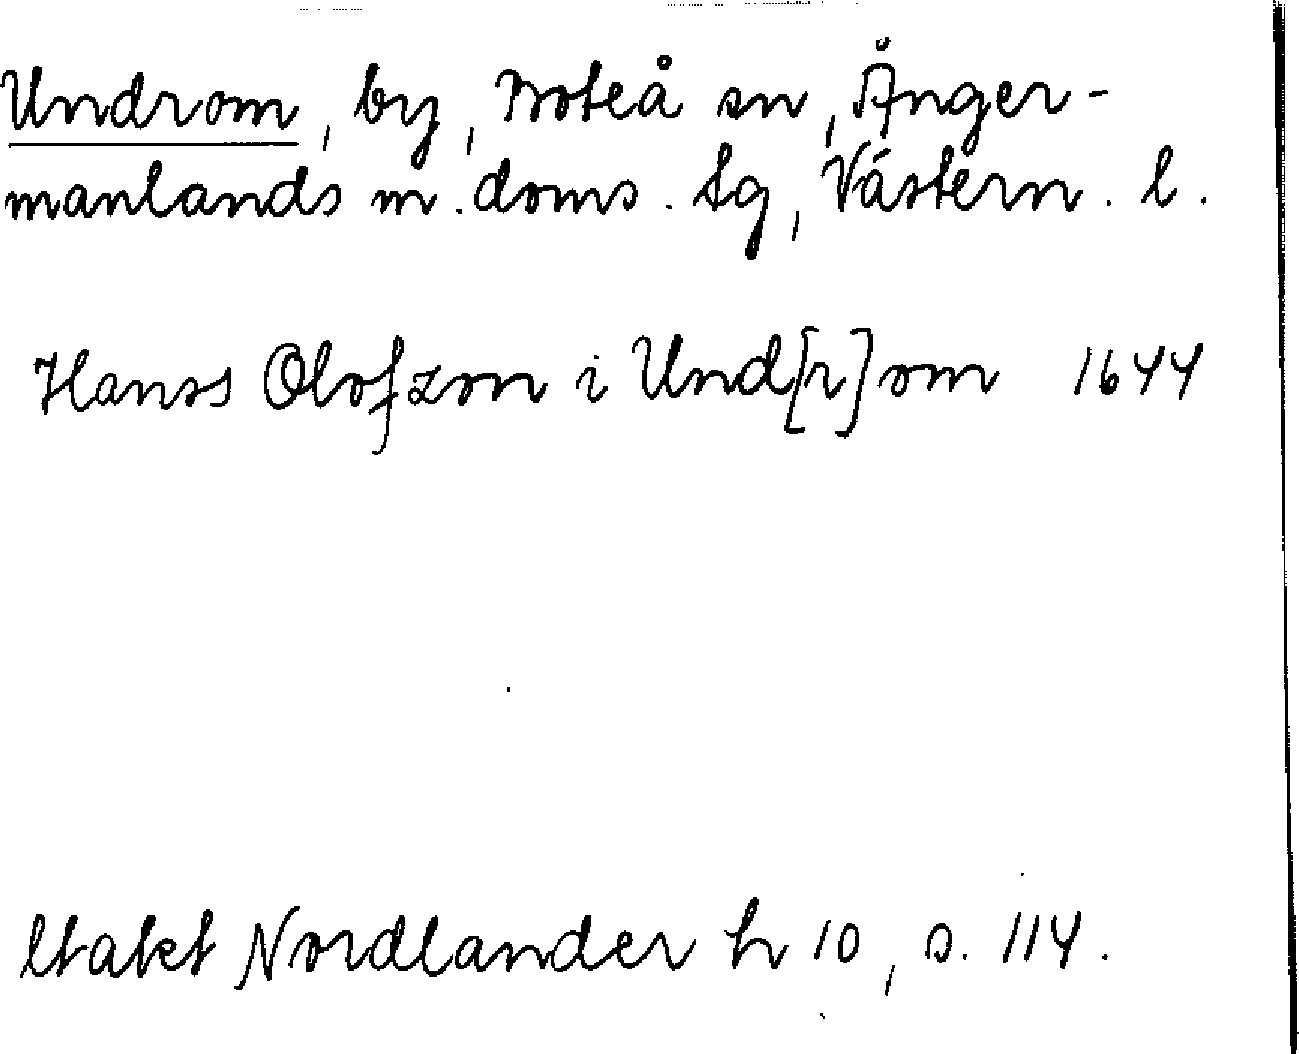 Undrom, by, Boteå sn, Ånger-
manlands m. doms. tg, Västern. l.
Hanss Olofzon i Und[r]om 1644
Utdebet Nordlander h 10, s. 114.